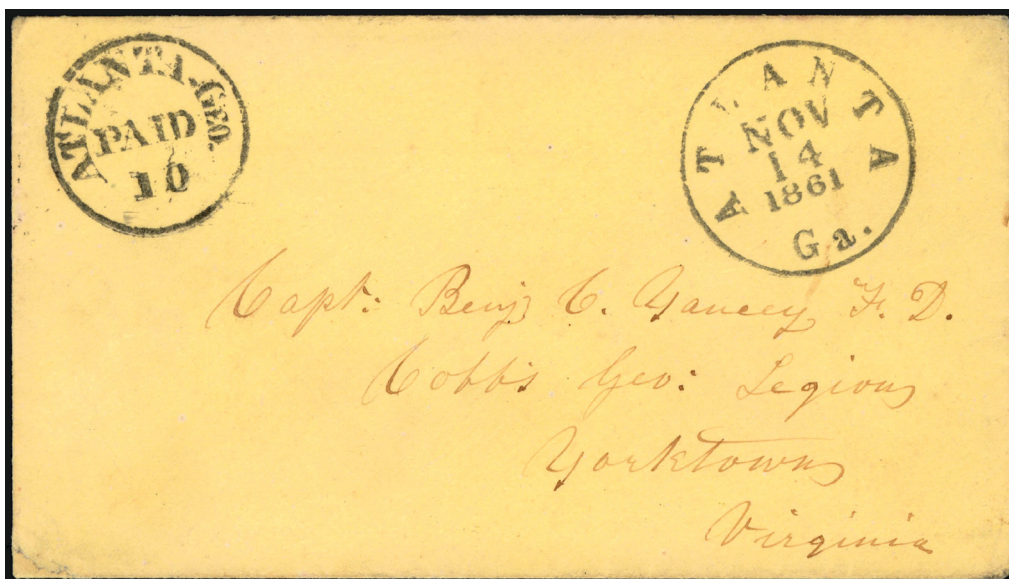 ATLANTA. GEO.
PAID
10
ATLANTA
NOV
14
1861
Ga.
Capt: Benj C. Yancey F. D.
Cobb's Geo: Legion
Yorktown
Virginia